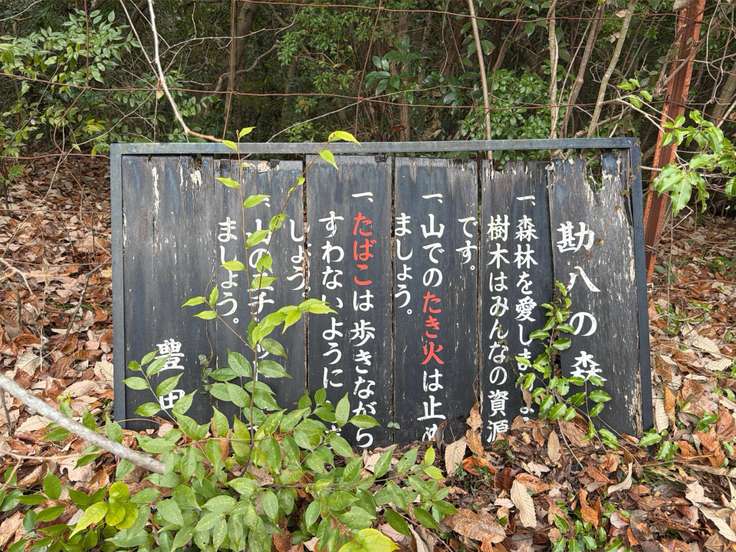 勘八の森
一、森林を愛しま
樹木はみんなの資源
です。
一、山での たき火は止め
ましょう。
一、たばこは歩きながら
すわないように
しょう。
山の チ
ましょう。
豊田